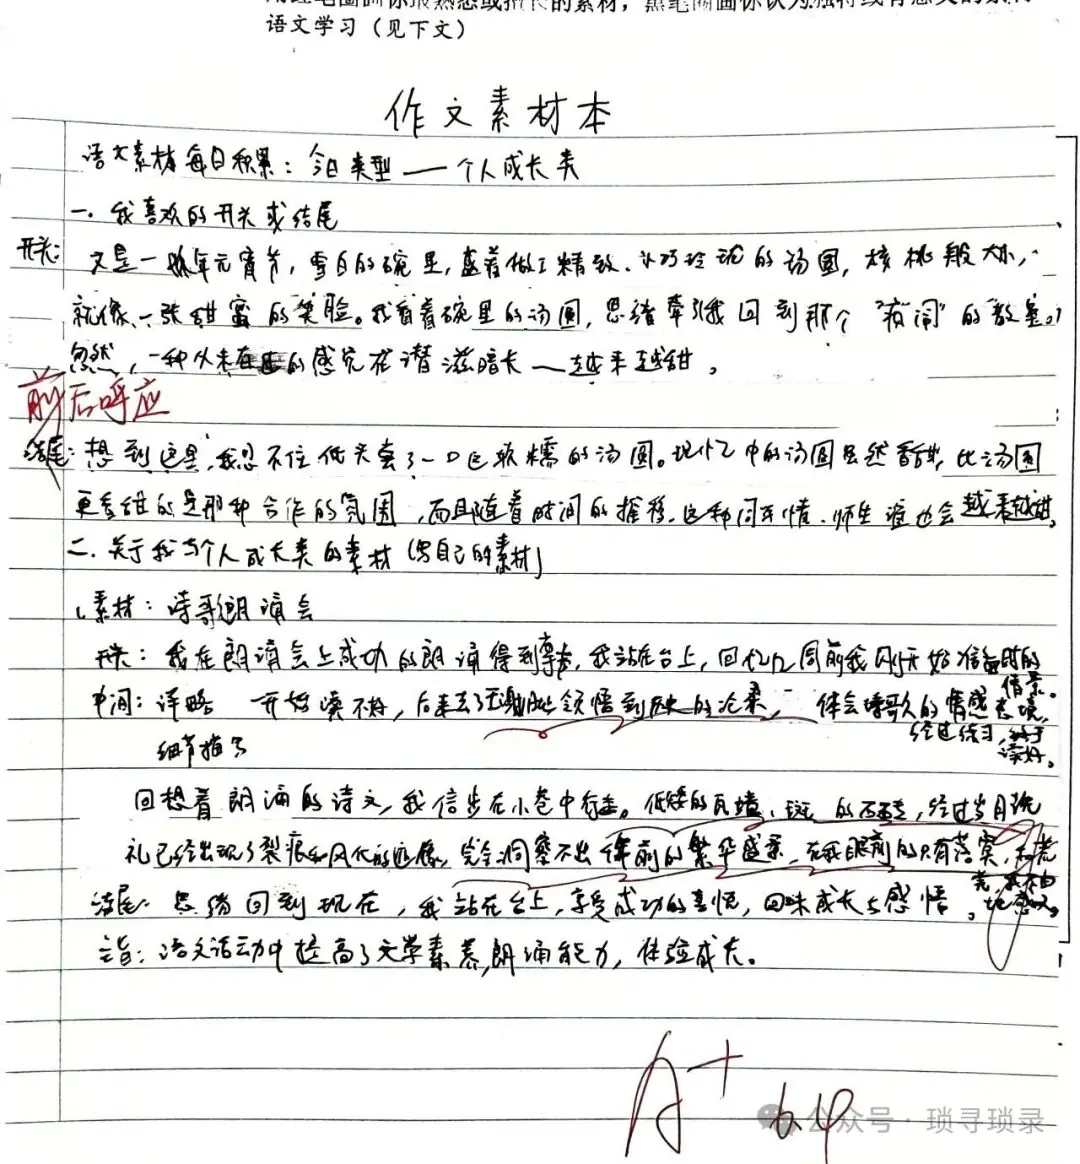 语文学习（见下文）
作文素材本
语文素材每日积累：今日类型——个人成长类
一、我喜欢的开头或结尾
开头：又是一年元宵节，雪白的碗里，盛着做工精致、小巧玲珑的汤圆，核桃般大小，
就像一张甜蜜的笑脸。我看着碗里的汤圆，思绪牵引我回到那个“夜闹”的教室。
忽然，一种从未有的感觉在潜滋暗长——越来越甜。
前后呼应
结尾：想到这里，我忍不住低头尝了一口这软糯的汤圆。记忆中的汤圆虽然香甜，比汤圆
更香甜的是那种合作的氛围，而且随着时间的推移，这种同事情、师生谊也会越来越甜。
二、关于我与个人成长类的素材（写自己的素材）
1、素材：诗歌朗诵会
开头：我在朗诵会上成功的朗诵得到，我站在台上，回忆周前我刚开始准备时的
情景。
中间：详略 一开始读不好，后来去了领悟到历史的沧桑，体会诗歌的情感意境，
经过练习，终于
读好。
细节描写
回想着朗诵的诗文，我信步在小巷中行走。低矮的瓦墙、斑的石砖，经过岁月洗
礼已经出现了裂痕和风化的，完全洞察不出年前的繁华盛景，在我眼前的只有落寞，
结尾：思绪回到现在，我站在台上，享受成功的喜悦，回味成长与感悟。
主旨：语文活动中提高了文学素养，朗诵能力，体验成长。
A+
公众号·琐寻琐录